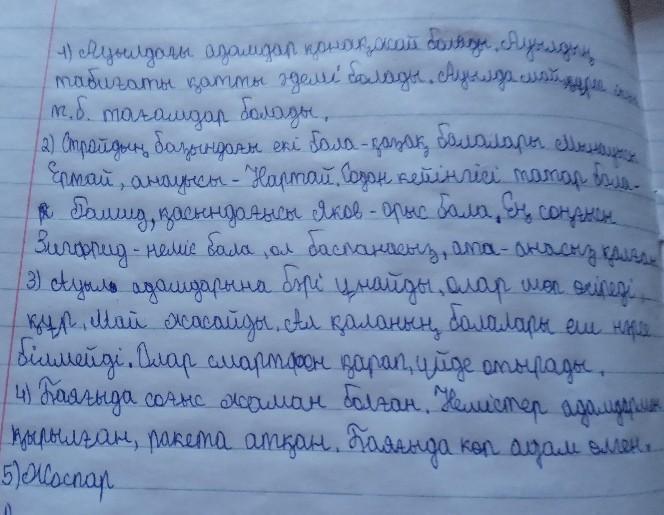 1) Ауылдағы адамдар қонақжай болады. Ауылдың
табиғаты қатты әдемі болады. Ауылда май, құрт
т.б. тағамдар болады.
2) Страйдың басындағы екі бала - қазақ балалары. Мынаусы
Ертай, анаусы - Нартай. Содан кейінгісі татар бала-
Рашид, қасындағысы Яков - орыс бала. Ең соңғысы
Зигфрид - неміс бала, ол баспанасыз, ата-анасыз қалған
3) Ауыл адамдарына бәрі ұнайды, олар шөп өсіреді,
құр, май жасайды. Ал қаланың балалары еш нәрсе
білмейді. Олар смартфон қарап, үйде отырады.
4) Баяғыда соғыс жаман болған. Немістер адамдарын
қырылған, ракета атқан. Баяғында көп адам өлген.
5) Жоспар